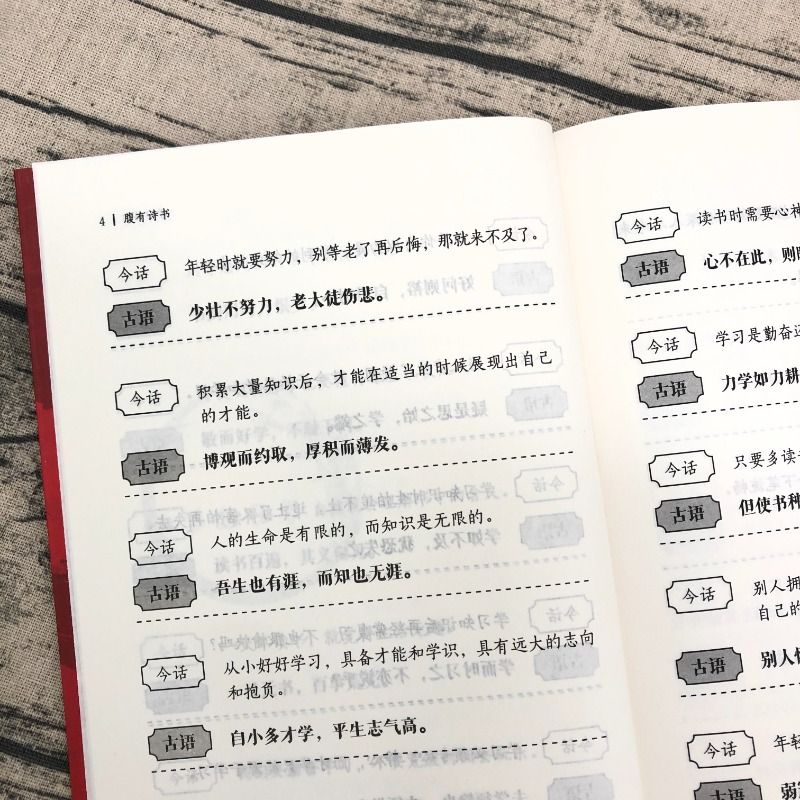 4 | 腹有诗书
今话 年轻时就要努力，别等老了再后悔，那就来不及了。
古语 少壮不努力，老大徒伤悲。
今话 积累大量知识后，才能在适当的时候展现出自己
的才能。
古语 博观而约取，厚积而薄发。
今话 人的生命是有限的，而知识是无限的。
古语 吾生也有涯，而知也无涯。
今话 从小好好学习，具备才能和学识，具有远大的志向
和抱负。
古语 自小多才学，平生志气高。
今话 读书时需要心神
古语 心不在此，则
今话 学习是勤奋
古语 力学如力耕
今话 只要多读
古语 但使书种
今话 别人拥
自己的
古语 别人
今话 年轻
古语 弱